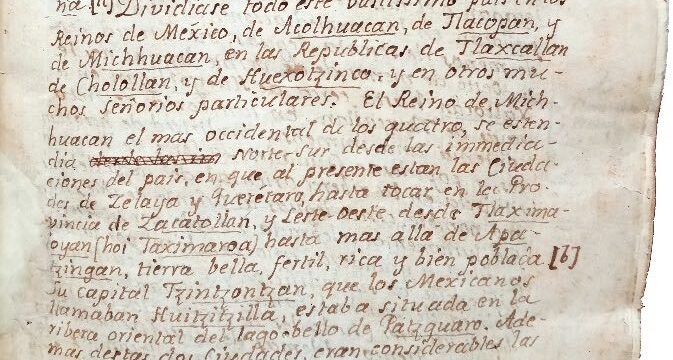 na [a] Dividíase todo este vastissimo pais en los
Reinos de México, de Acolhuacan, de Tlacopan, y
de Michhuacan, en las Republicas de Tlaxcallan
de Cholollan, y de Huexotzinco, y en otros mu-
chos señorios particulares. El Reino de Mich-
huacan el mas occidental de los quatro, se esten-
dia Norte-Sur desde las immedia-
ciones del pais, en que al presente estan las Ciuda-
des de Zelaya y Querétaro, hasta tocar en la Pro-
vincia de Zacatollan, y Leste-Oeste desde Tlaxima-
oyan (hoi Taximaroa) hasta mas allá de Apa-
tzingan, tierra bella, fertil, rica y bien poblada [b]
Su capital Tzintzontzan, que los Mexicanos
llamaban Huitzitzilla, estaba situada en la
ribera oriental del lago bello de Patzquaro. Ade-
mas destas dos Ciudades, eran considerables las